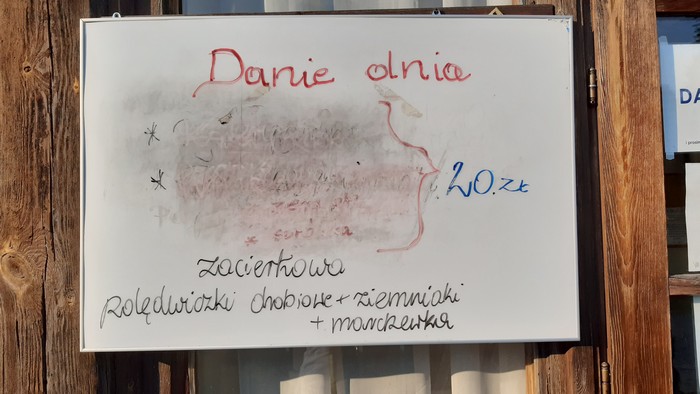 Danie dnia
*
*
* surówka
20.zł
zacierkowa
polędwiczki drobiowe + ziemniaki
+ marchewka
DA